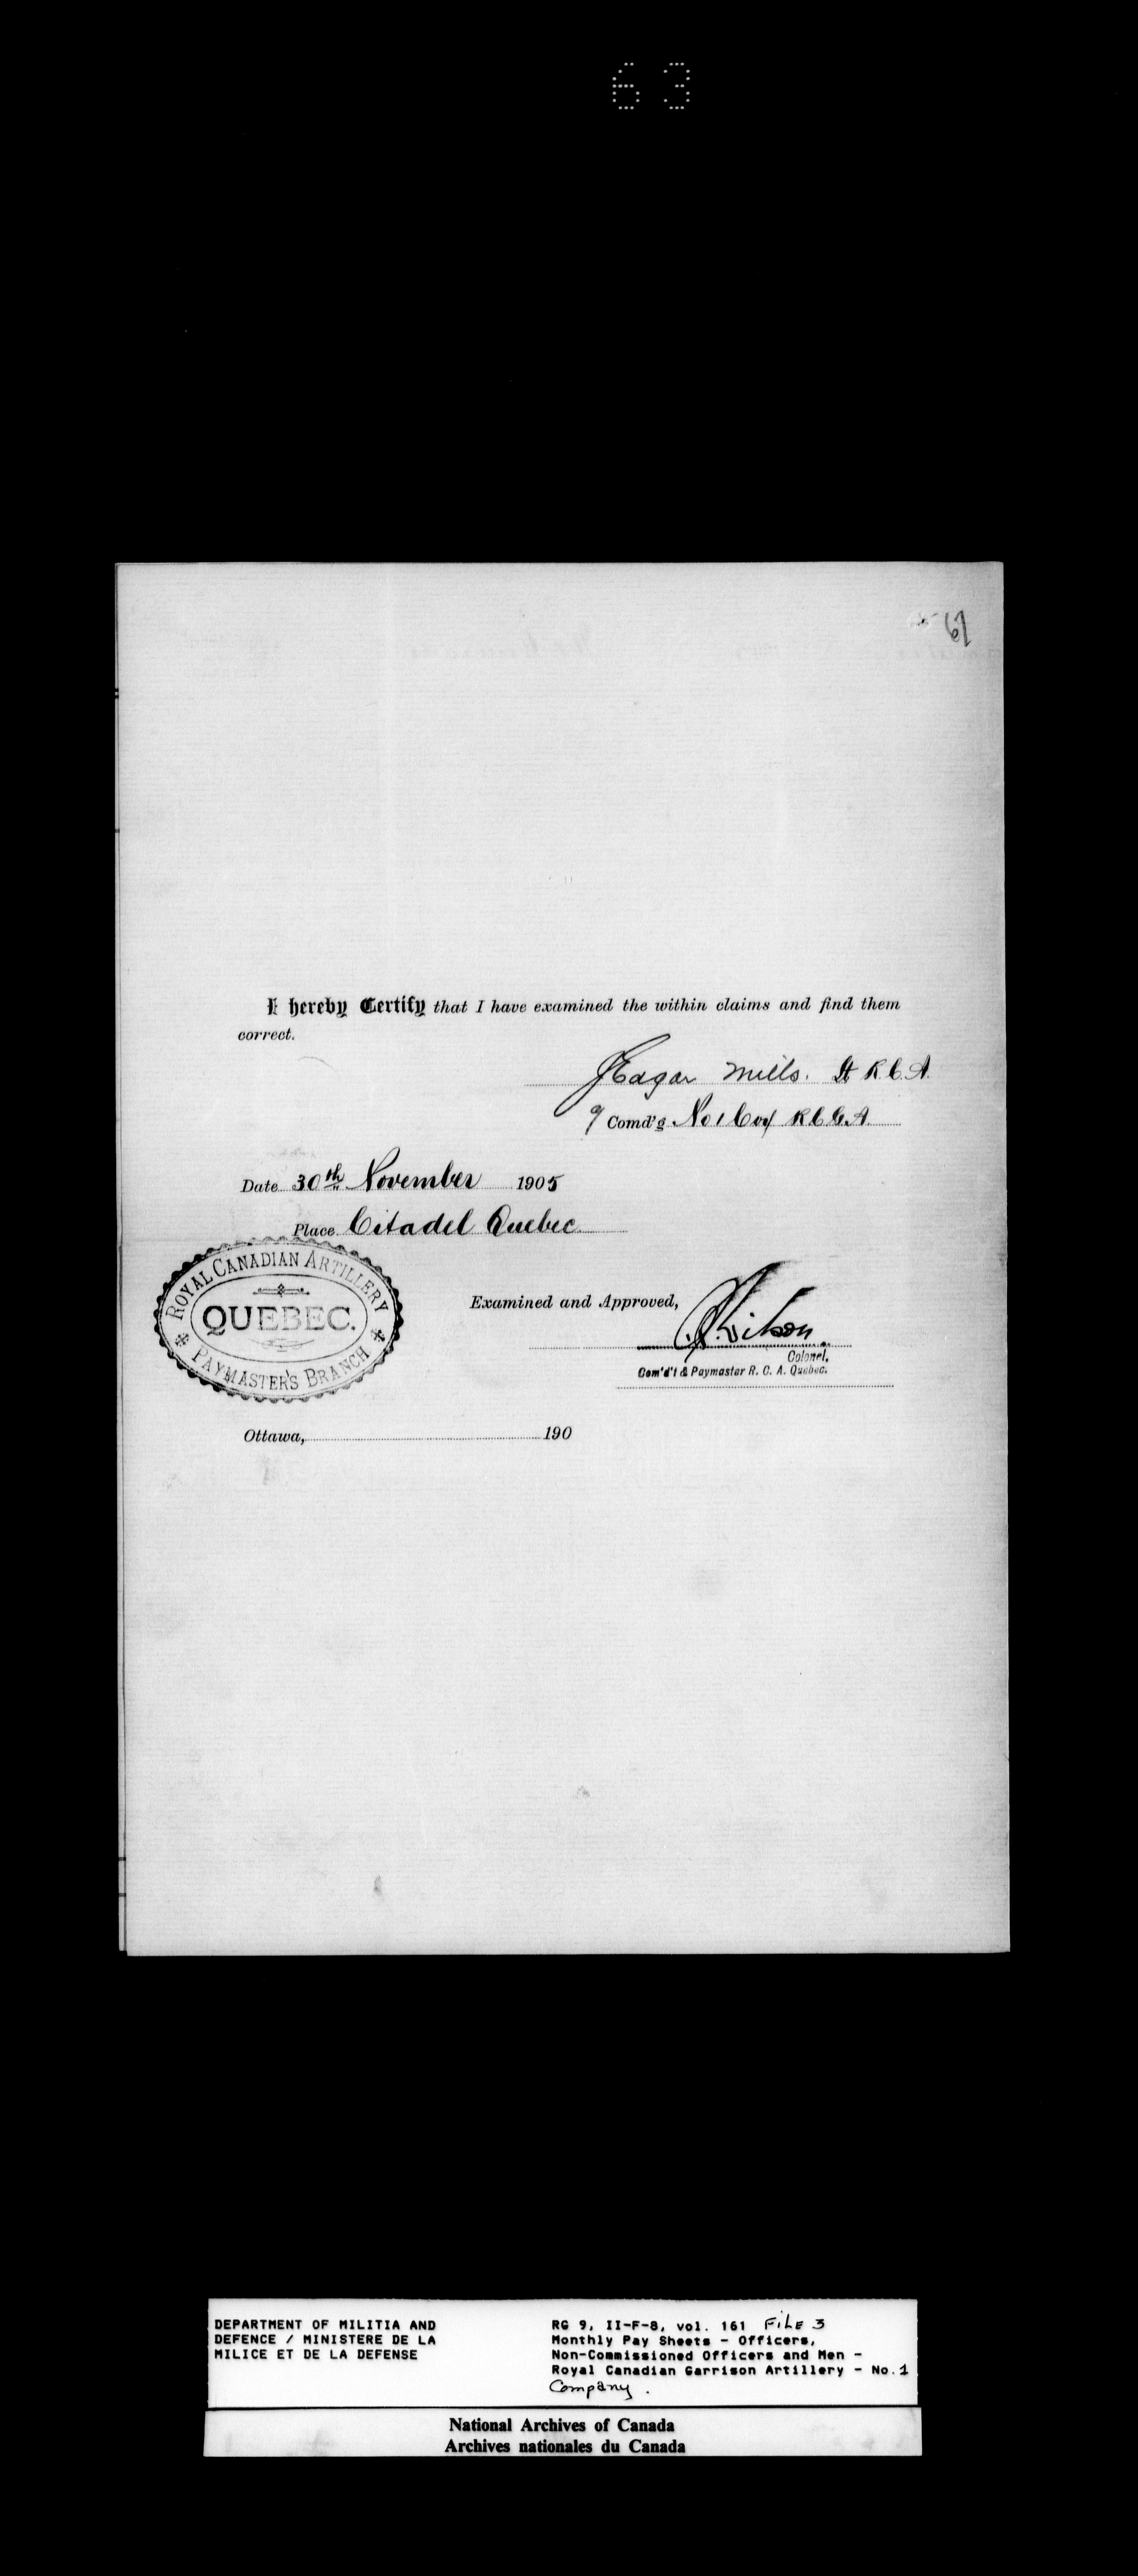 63
61
I hereby Certify that I have examined the within claims and find them
correct.
J Eagar Mills. Lt R.C.A.
Comd'g No 1 Coy R C G. A.
Date 30th November 1905
Place Citadel Quebec
ROYAL CANADIAN ARTILLERY
QUEBEC.
PAYMASTER'S BRANCH
Examined and Approved,
Wilson
Colonel,
Com'd't & Paymaster R. C. A. Quebec.
Ottawa, 190
DEPARTMENT OF MILITIA AND
DEFENCE / MINISTERE DE LA
MILICE ET DE LA DEFENSE
RG 9, II-F-8, vol. 161 FILE 3
Monthly Pay Sheets - Officers,
Non-Commissioned Officers and Men -
Royal Canadian Garrison Artillery - No.1
Company.
National Archives of Canada
Archives nationales du Canada